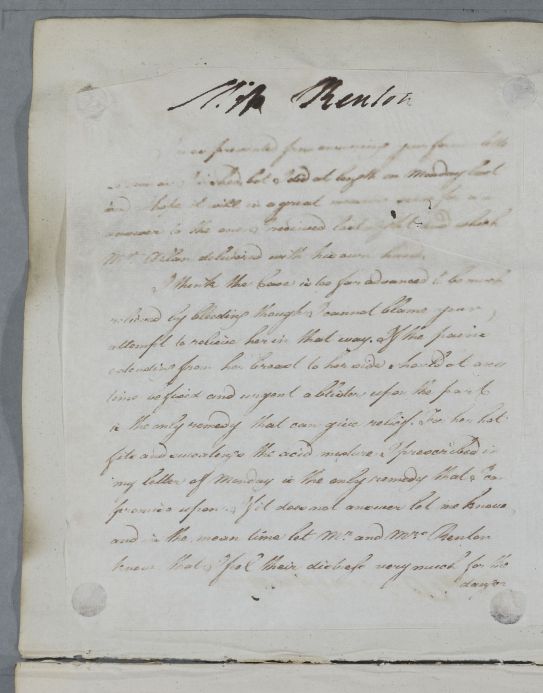 Miss Renton
I was prevented from answering your former letter
as soon as I wished but I did at length on Monday last
and I hope it will in a great measure serve for an
answer to the one I received last night and which
Mr. delivered with his own hand.
I think the Case is too far advanced to be much
relieved by bleeding though I cannot blame your
attempt to relieve her in that way. If the pain
extending from her breast to her side should at any
time be fixed and urgent a blister upon the part
is the only remedy that can give relief. For her hot
fits and sweatings the acid mixture I prescribed in
my letter of Monday is the only remedy that I can
promise upon. If it does not answer let me know
and in the mean time let Mr. and Mrs. Renton
know that I feel their distress very much for the
danger